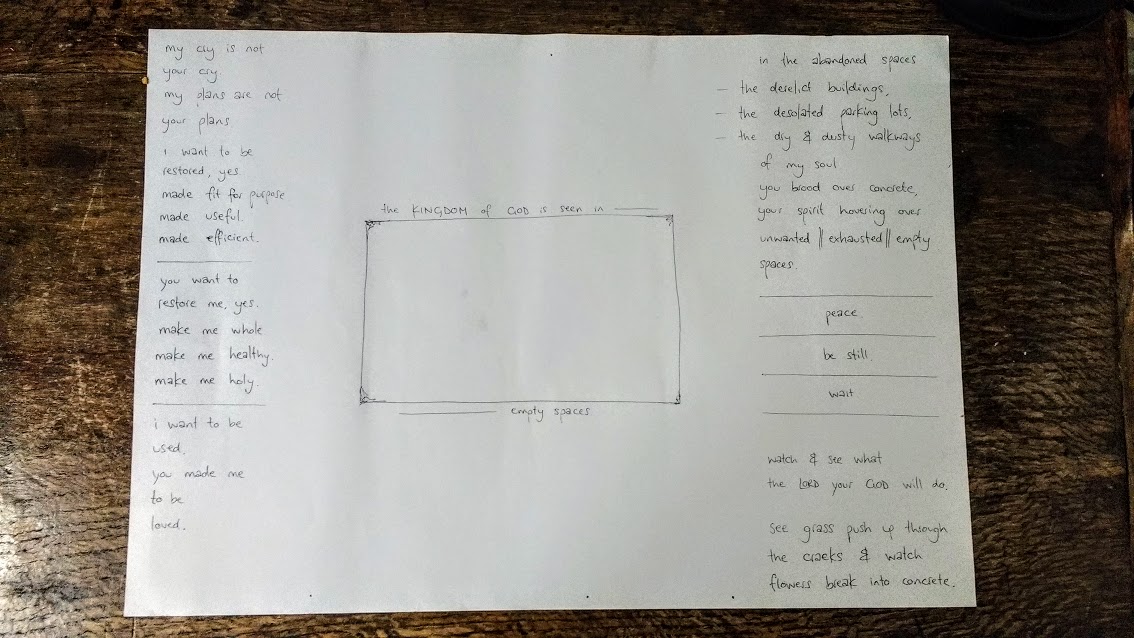 my cry is not
your cry
my plans are not
your plans
i want to be
restored, yes
made fit for purpose
made useful.
made efficient.
you want to
restore me, yes.
make me whole
make me healthy.
make me holy.
i want to be
used.
you made me
to be
loved.
the KINGDOM of GOD is seen in
empty spaces
in the abandoned spaces
– the derelict buildings,
– the desolated parking lots,
– the dry & dusty walkways
of my soul
you brood over concrete,
your spirit hovering over
unwanted || exhausted || empty
spaces.
peace
be still.
wait
watch & see what
the LORD your GOD will do.
see grass push up through
the cracks & watch
flowers break into concrete.